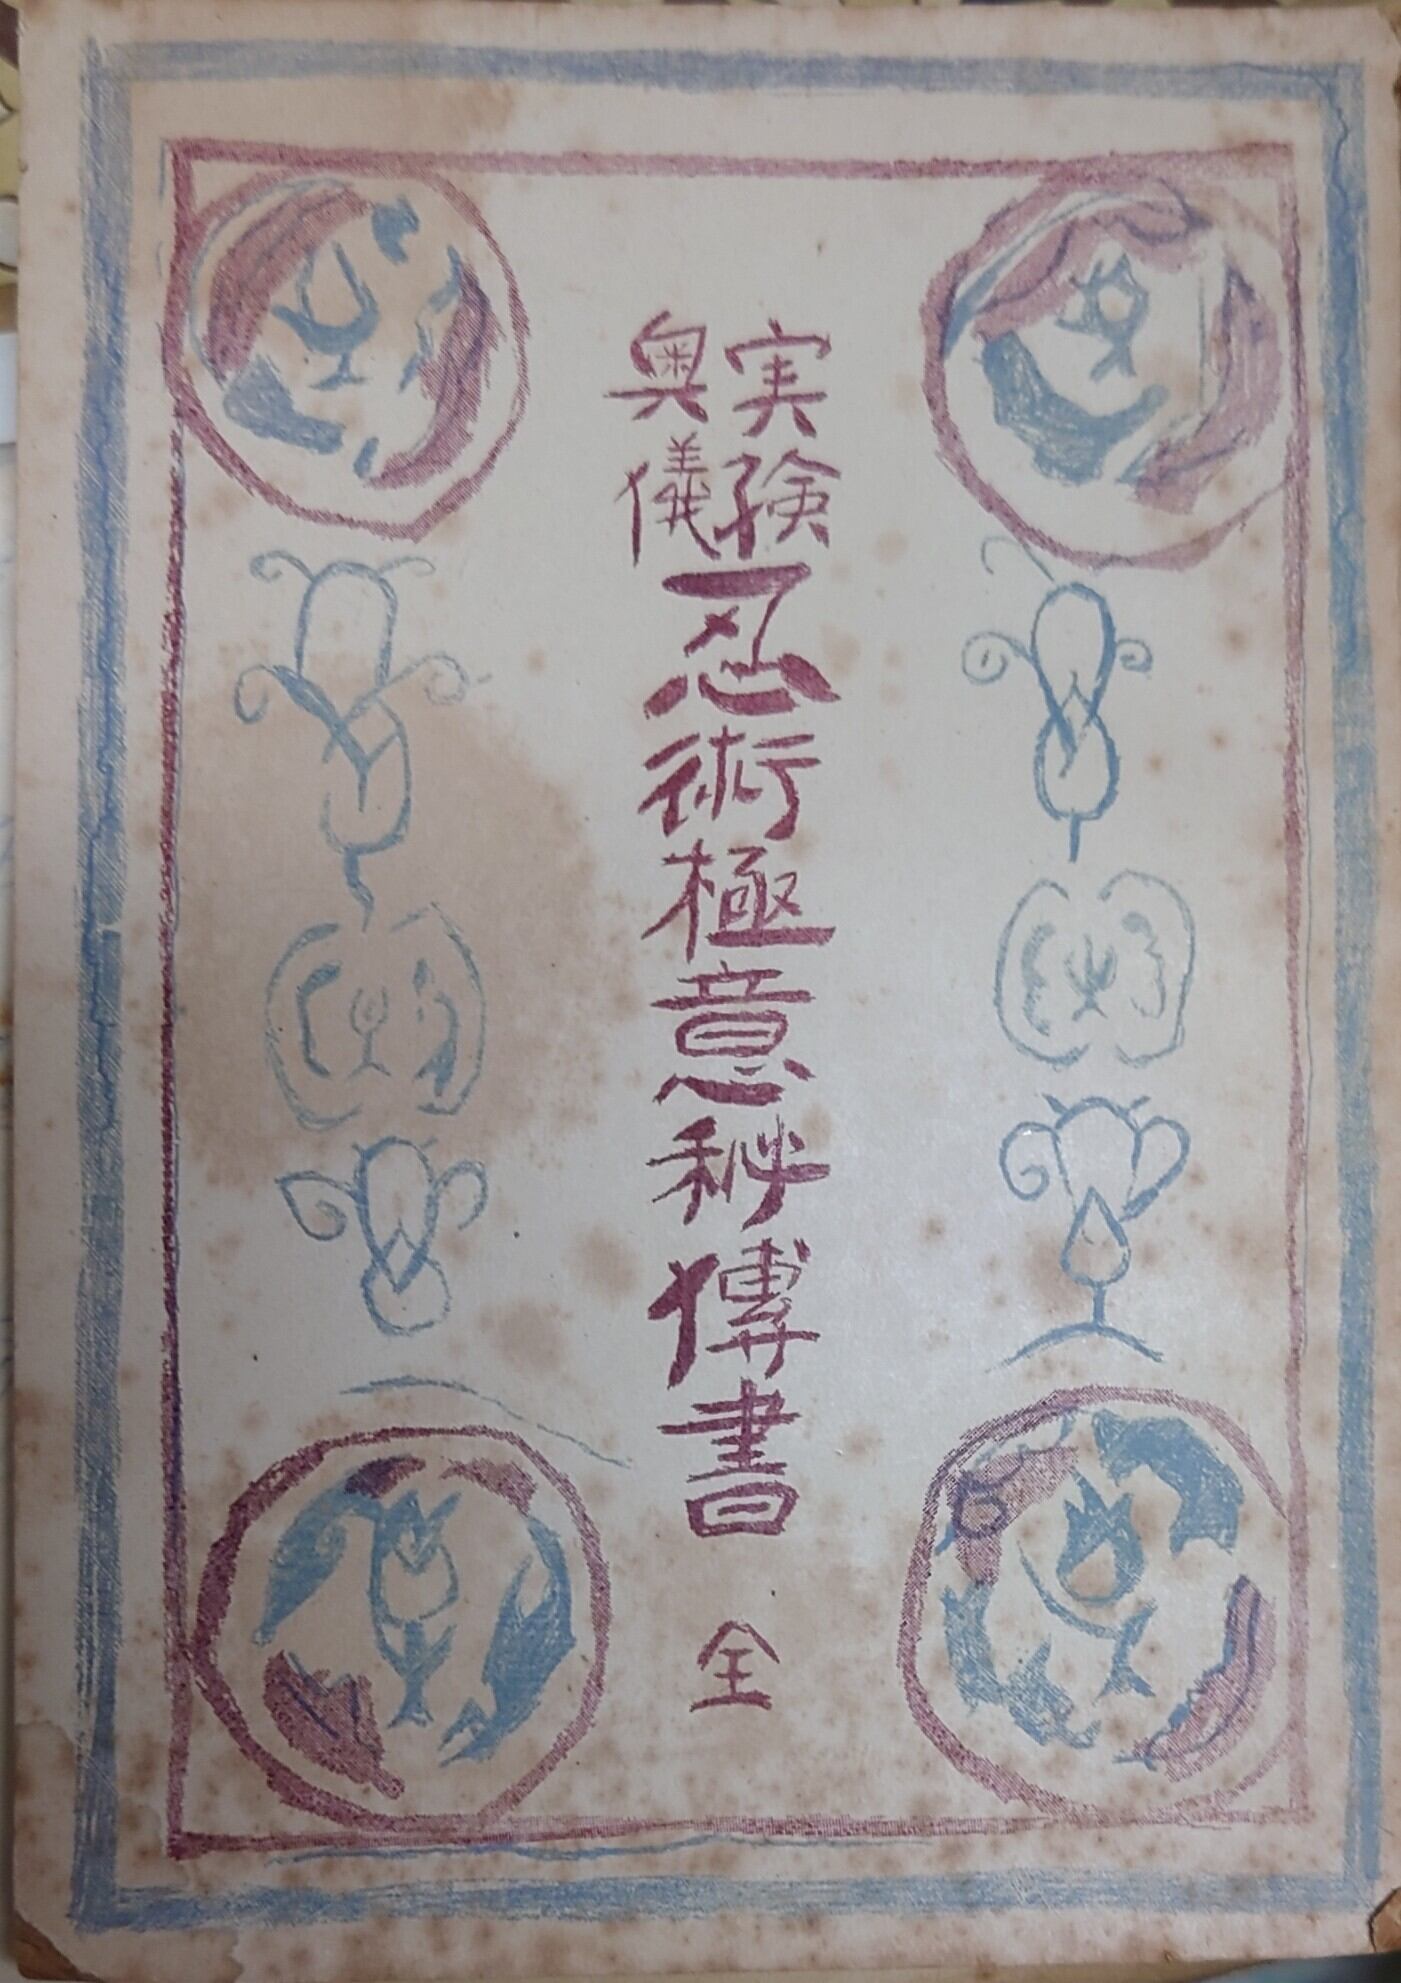 実険
奥儀
忍術極意秘傳書
全